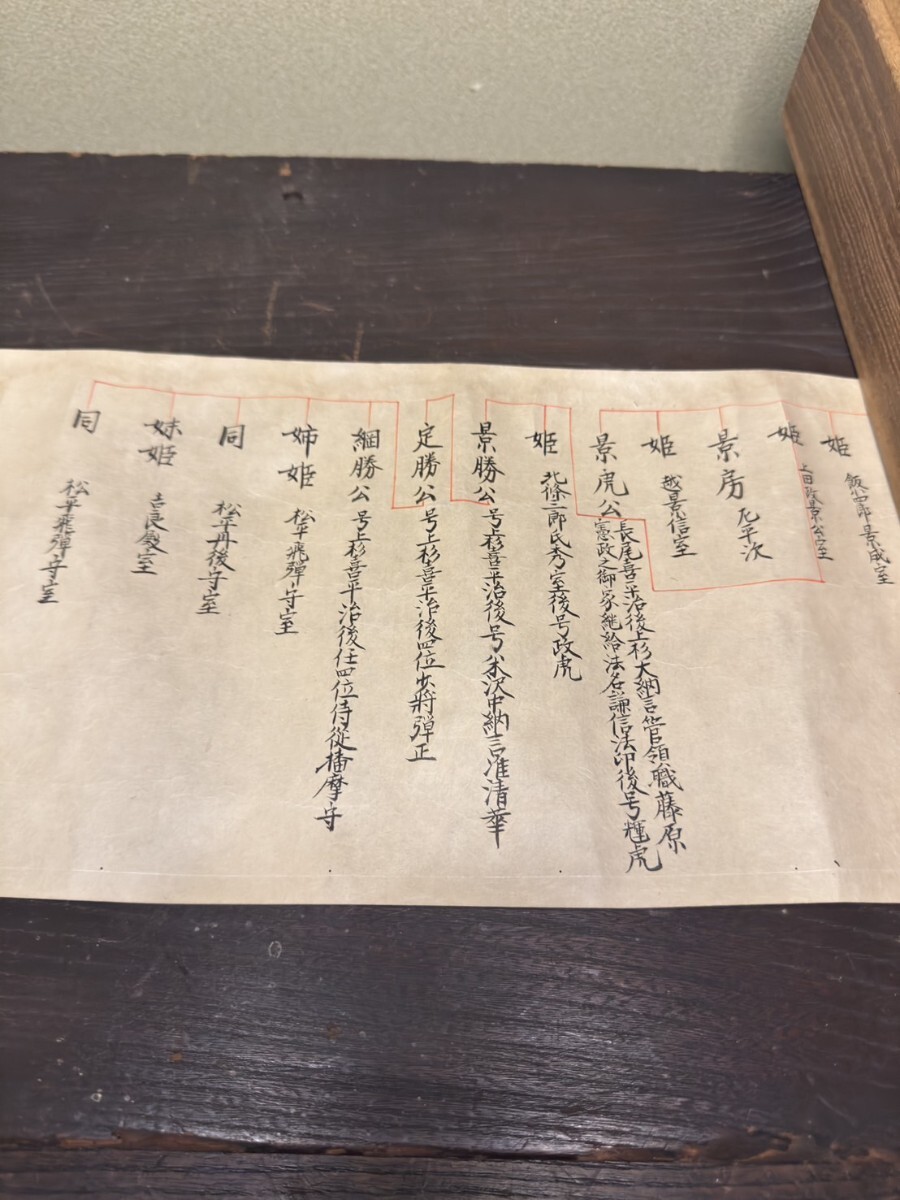 姫 飯四郎景成室
姫 上田政景公室
景房 左平次
姫 越景信室
景虎公 長尾喜平治後上杉大納言管領職藤原
憲政之御家継給法名謙信法印後号輝虎
姫 北條三郎氏秀室後号政虎
景勝公 号上杉喜平治後号米沢中納言准清華
定勝公 号上杉喜平治後四位少将弾正
綱勝公 号上杉喜平治後任四位侍従播摩守
姉姫 松平飛弾守室
同 松平丹後守室
妹姫 吉良殿室
同 松平飛弾守室